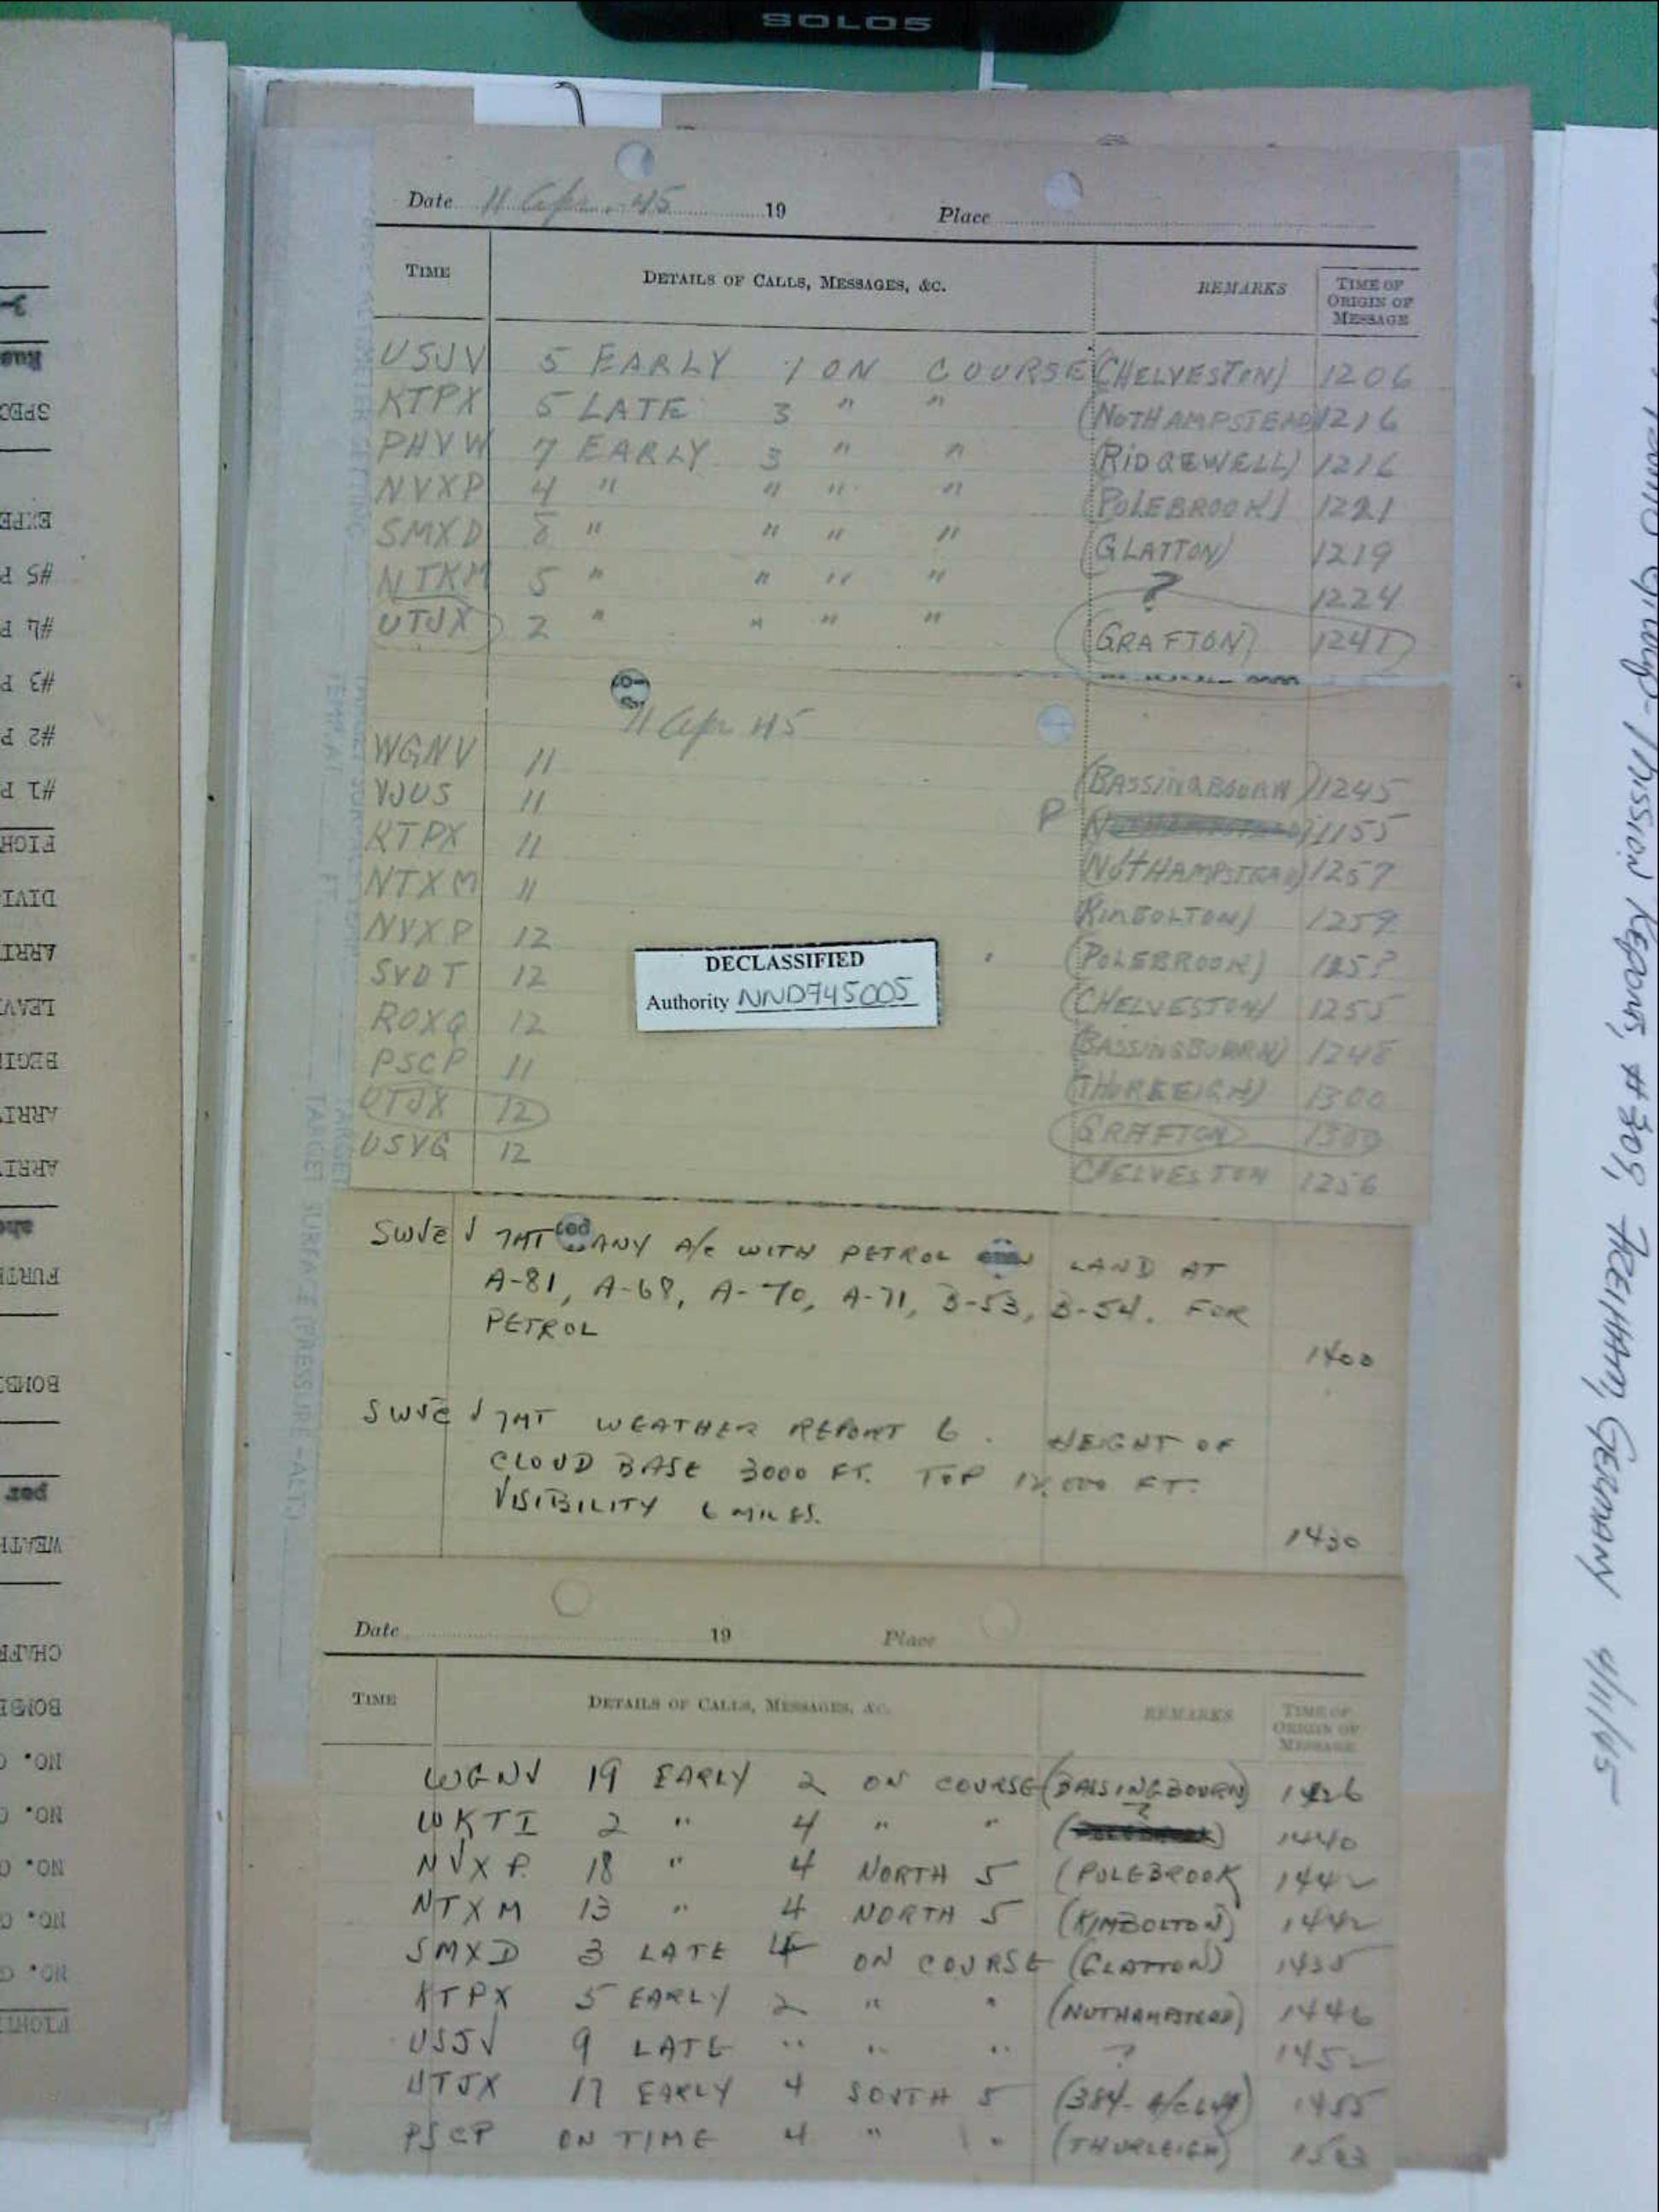 SOLO5
Date 11 Apr. 45 19 Place
TIME DETAILS OF CALLS, MESSAGES, &C. REMARKS TIME OF ORIGIN OF MESSAGE
USJV 5 EARLY 1 ON COURSE (CHELVESTON) 1206
KTPX 5 LATE 3 " " (NOTHAMPSTEAD 1216
PHVW 7 EARLY 3 " " (RIDGEWELL) 1216
NVXP 4 " " " " (POLEBROOK) 1221
SMXD " " " " (GLATTON) 1219
NTXM 5 " " " " ? 1224
UTJX 2 " " " " (GRAFTON) 1241
11 Apr 45
WGNV 11 (BASSINGBOURN) 1245
VJUS 11 P 1155
KTPX 11 (NUTHAMPSTEAD) 1257
NTXM 11 (KIMBOLTON) 1259
NVXP 12 (POLEBROOK) 125?
SVDT 12 (CHELVESTON) 1255
ROXQ 12 (BASSINGBOURN) 1248
PSCP 11 (THURLEIGH) 1300
UTJX 12 GRAFTON
USVG 12 CHELVESTON 1256
DECLASSIFIED
Authority NND745005
ANY A/C WITH PETROL LAND AT
A-81, A-68, A-70, A-71, B-53, B-54. FOR
PETROL
1400
WEATHER REPORT 6. HEIGHT OF
CLOUD BASE 3000 FT. TOP FT.
VISIBILITY 6 MILES.
1430
Date 19 Place
TIME DETAILS OF CALLS, MESSAGES, &C. REMARKS TIME OF ORIGIN OF MESSAGE
WGNV 19 EARLY 2 ON COURSE (BASSINGBOURN) 1426
WKTI 2 " 4 " " ? 1440
NVXP 18 " 4 NORTH 5 (POLEBROOK 1442
NTXM 13 " 4 NORTH 5 (KIMBOLTON) 1442
SMXD 3 LATE 4 ON COURSE (GLATTON) 1435
KTPX 5 EARLY 2 " " (NUTHAMPSTEAD) 1446
USJV 9 LATE " " " ? 1452
UTJX 17 EARLY 4 SOUTH 5 (384- 1455
PSCP ON TIME 4 " " (THURLEIGH)
Mission Reports, #309, FREIHAM, GERMANY 4/11/45
SPEC
EXPE
#5 P
#4 P
#3 P
#2 P
#1 P
FIGH
DIVI
ARRI
LEAV
BEGI
ARRI
ARRI
FURT
BOMB
per
WEATH
CHAFF
BOMB
NO. O
NO. O
NO. O
NO. O
NO. O
FIGHT